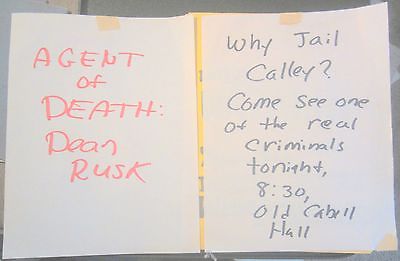 AGENT
of
DEATH:
Dean
RUSK
Why Jail
Calley?
Come see one
of the real
criminals
tonight,
8:30,
Old Cabell
Hall